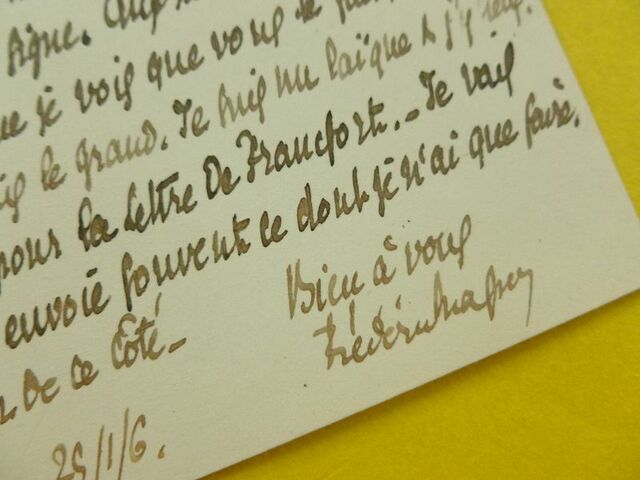 que je vois que vous le
le grand. Je suis un laïque & j'y
pour la lettre de Francfort. – Je vais
envoie souvent ce dont je n'ai que faire.
de ce côté –
Bien à vous
Frédéric
25/1/6.